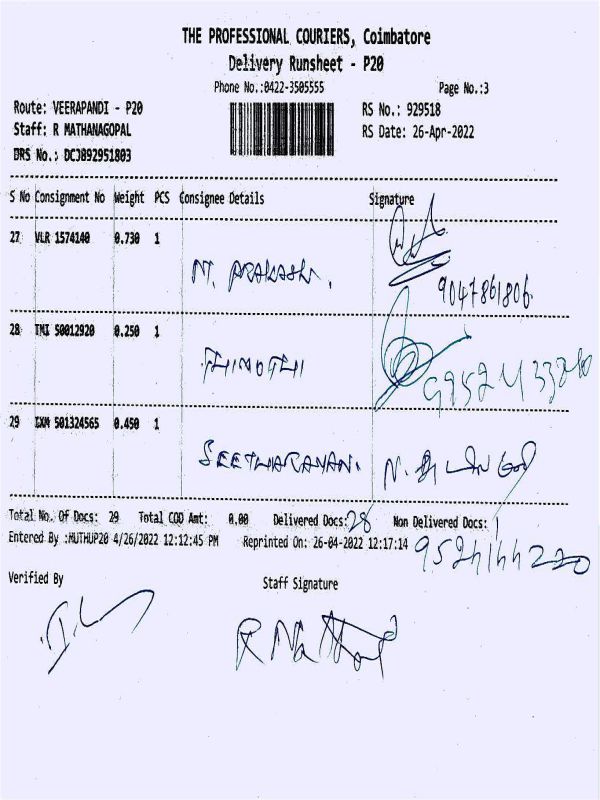 THE PROFESSIONAL COURIERS, Coimbatore
Delivery Runsheet - P20
Phone No.:0422-3505555 Page No.:3
Route: VEERAPANDI - P20 RS No.: 929518
Staff: R MATHANAGOPAL RS Date: 26-Apr-2022
DRS No.: DCJ892951803
S No Consignment No Weight PCS Consignee Details Signature
27 VLR 1574140 0.730 1
M. PRAKASH. 9047861806
28 TMI 50012920 0.250 1
THIMOTHI
29 IXM 501324565 0.450 1
SEETHARAMAN. N.
Total No. Of Docs: 29 Total COD Amt: 0.00 Delivered Docs: 28 Non Delivered Docs: 1
Entered By :MUTHUP20 4/26/2022 12:12:45 PM Reprinted On: 26-04-2022 12:17:14
Verified By Staff Signature